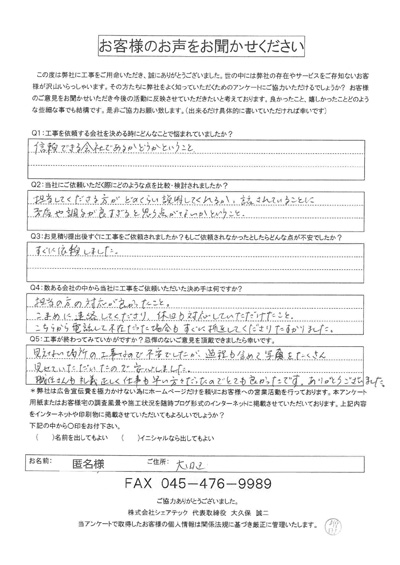 お客様のお声をお聞かせください
この度は弊社に工事をご用命いただき、誠にありがとうございました。世の中には弊社の存在やサービスをご存知ないお客
様が沢山いらっしゃいます。その方たちに弊社をよく知っていただくためのアンケートにご協力いただけるでしょうか? お客様
のご意見をお聞かせいただき今後の活動に反映させていただきたいと考えております。良かったこと、嬉しかったことどのよう
な些細な事でも結構です。是非ご協力お願い致します。(出来るだけ具体的に書いていただければ幸いです)
Q1:工事を依頼する会社を決める時にどんなことで悩まれていましたか?
信頼できる会社であるかどうかということ
Q2:当社にご依頼いただく際にどのような点を比較・検討されましたか?
担当してくださる方がどのくらい説明してくれるか、話されていることに
矛盾や調子が良すぎると思う点がないかということ。
Q3:お見積り提出後すぐに工事をご依頼されましたか?もしご依頼されなかったとしたらどんな点が不安でしたか?
すぐに依頼しました。
Q4:数ある会社の中から当社に工事をご依頼いただいた決め手は何ですか?
担当の方の対応が良かったこと。
こまめに連絡してくださり、休日も対応していただけたこと。
こちらから電話して不在だった場合もすぐに折返してくださりたすかりました。
Q5:工事が終わってみていかがですか?忌憚のないご意見を頂戴できましたら幸いです。
見えない場所の工事なので不安でしたが、過程も含めて写真をたくさん
見せていただいたので安心しました。
職人さんも礼儀正しく仕事も早い方だったのでとても良かったです。ありがとうございました。
*弊社は広告宣伝費を極力かけない為にホームページだけを頼りにお客様への営業活動を行っております。本アンケート
用紙またはお客様宅の調査風景や施工状況を随時ブログ形式のインターネットに掲載させていただいております。上記内容
をインターネットや印刷物に掲載させていただいてもよろしいでしょうか?
下記の中から○印をお付下さい。
( )名前を出してもよい ( )イニシャルなら出してもよい
お名前: 匿名様 ご住所:
FAX 045-476-9989
ご協力ありがとうございました。
株式会社シェアテック 代表取締役 大久保 誠二
当アンケートで取得したお客様の個人情報は関係法規に基づき厳正に管理いたします。